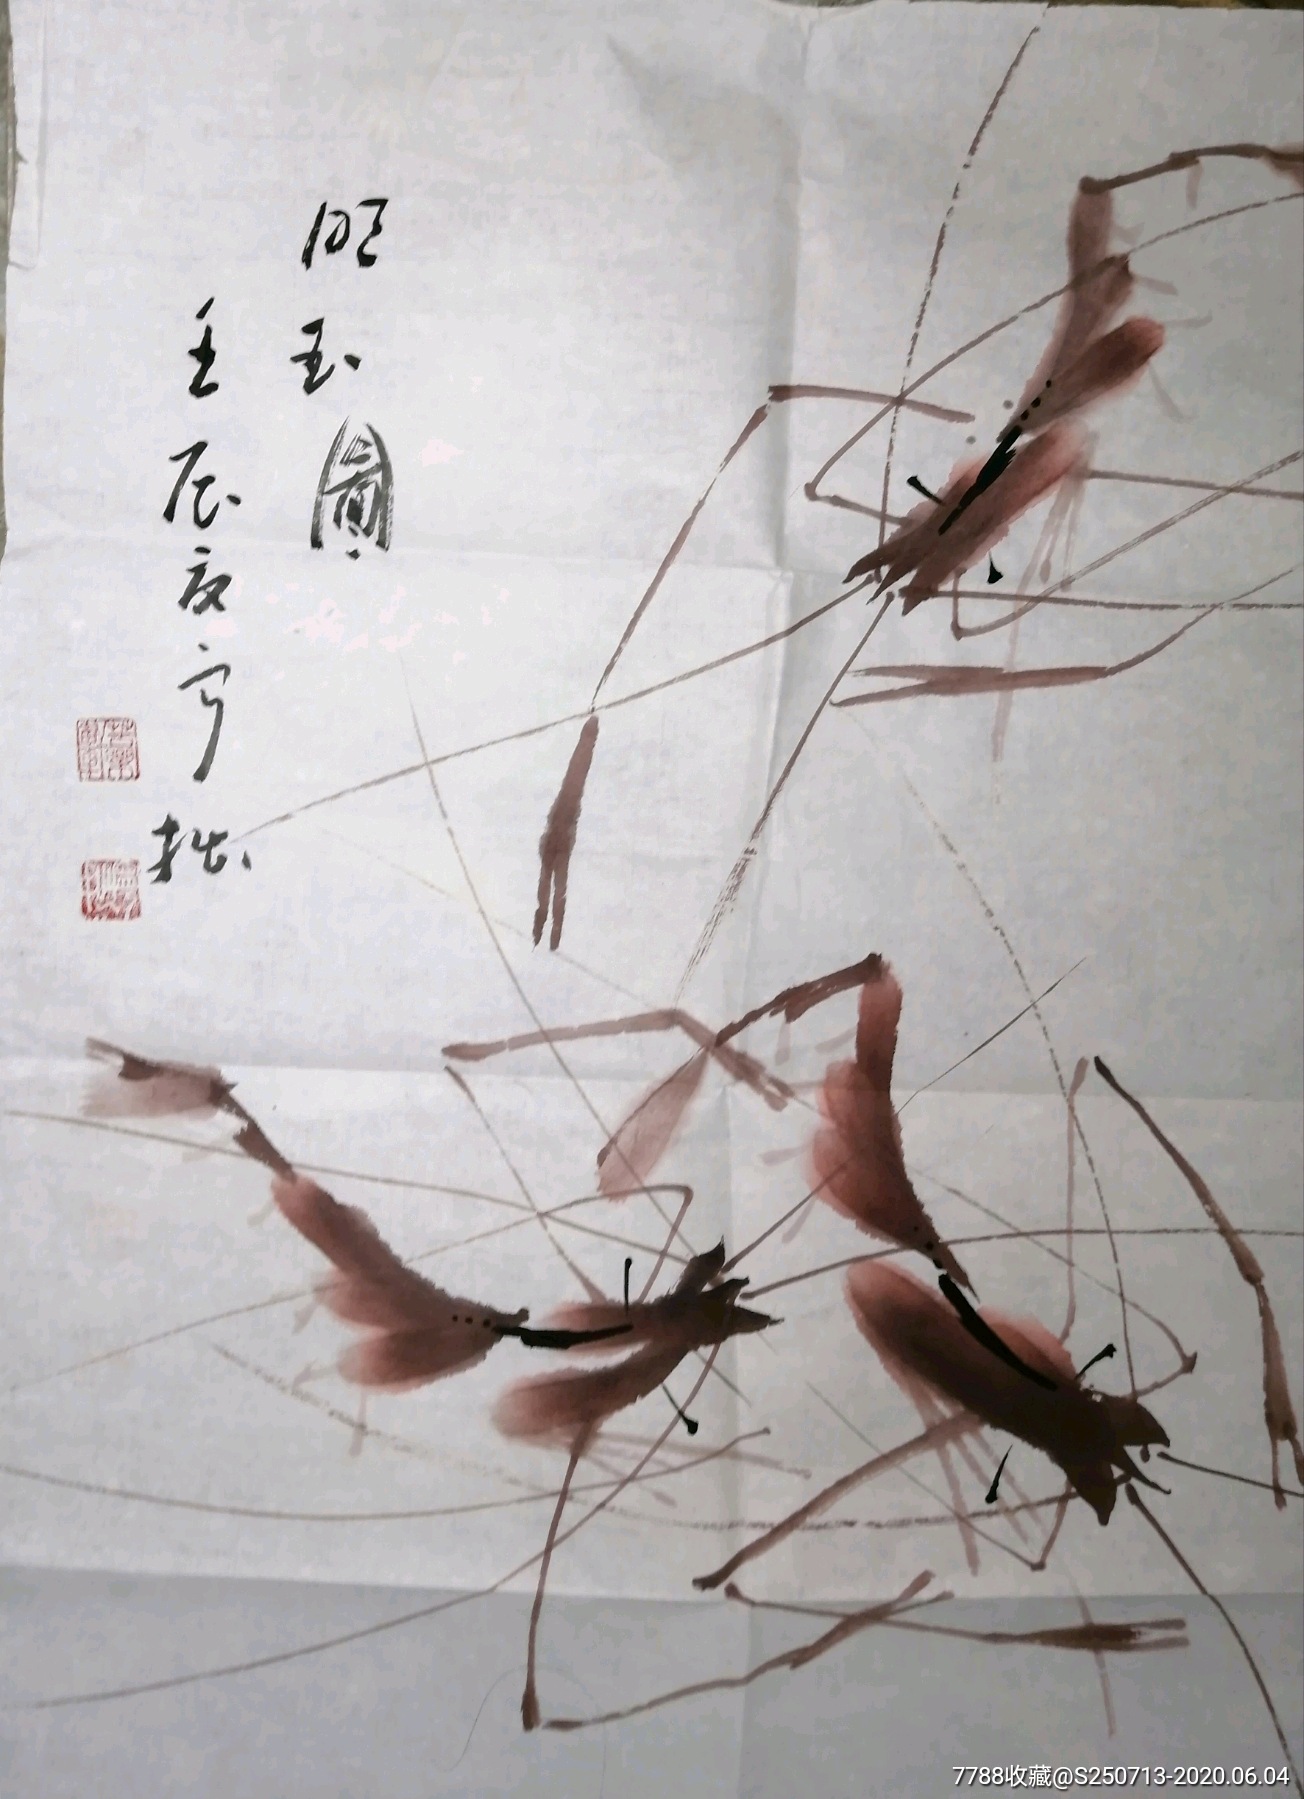 明玉圖
壬辰夜寧拙
7788收藏@S250713-2020.06.04